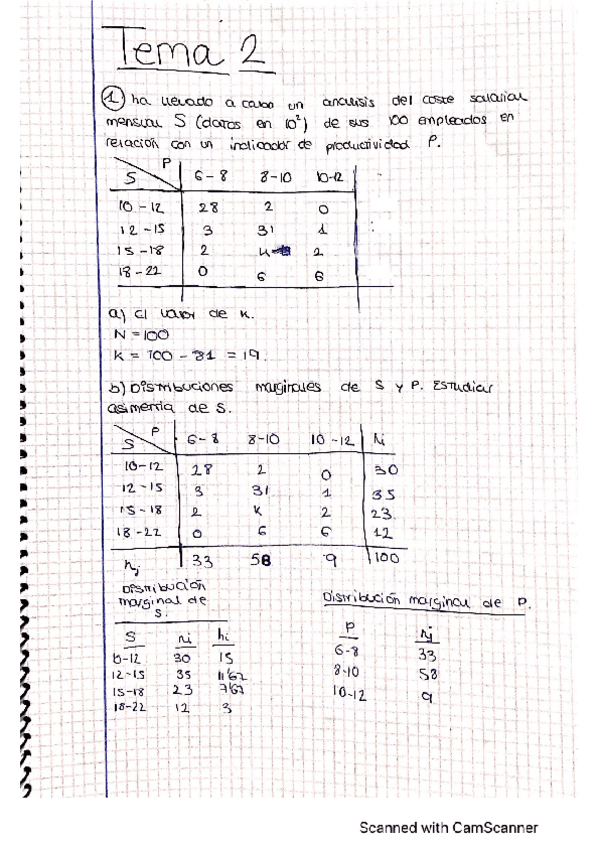 Tema 2
① ha llevado a cabo un analisis del coste salarial
mensual S (datos en 10²) de sus 100 empleados en
relación con un indicador de productividad P.
S P 6-8 8-10 10-12
10-12 28 2 0
12-15 3 31 1
15-18 2 K 2
18-22 0 6 6
a) El valor de K.
N = 100
K = 100 - 81 = 19.
b) Distribuciones marginales de S y P. Estudiar
asimetria de S.
S P 6-8 8-10 10-12 Ni
10-12 28 2 0 30
12-15 3 31 1 35
15-18 2 K 2 23
18-22 0 6 6 12
nj 33 58 9 100
Distribución
marginal de
S.
Distribución marginal de P.
S ni hi
10-12 30 15
12-15 35 11'67
15-18 23 7'67
18-22 12 3
P Nj
6-8 33
8-10 58
10-12 9
Scanned with CamScanner